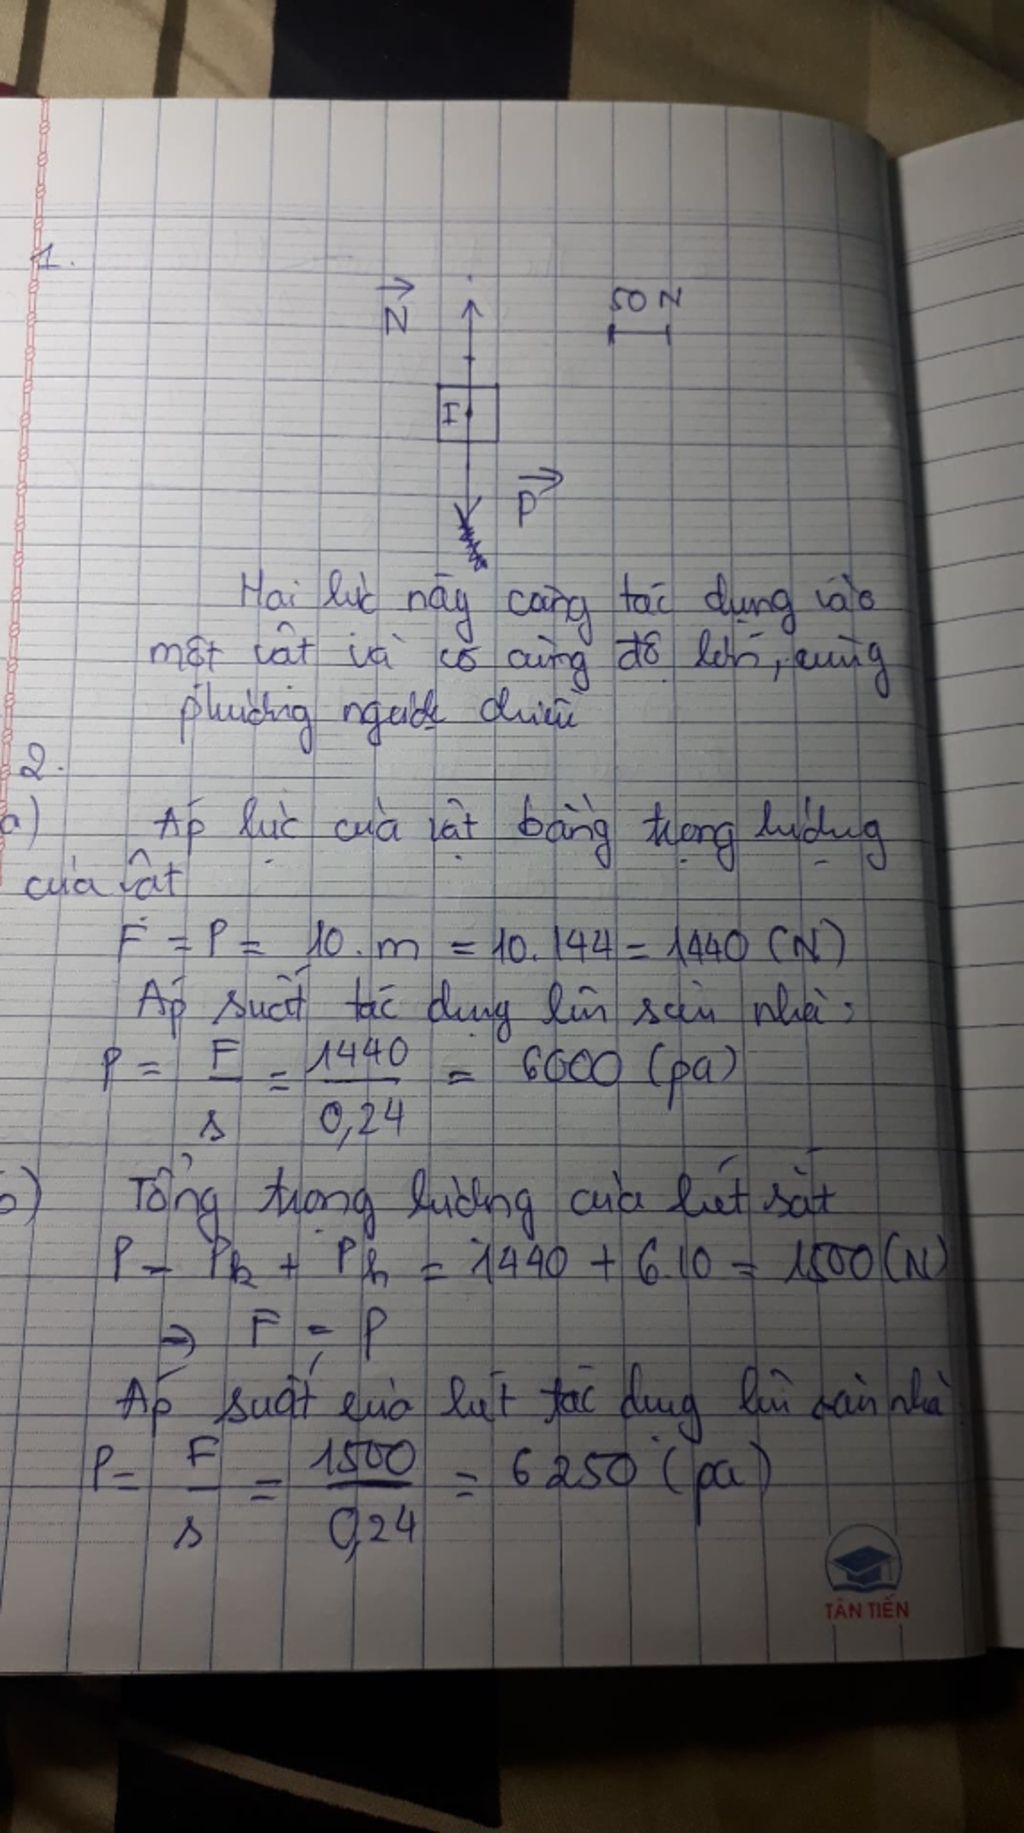 1.
N
50 N
I
P
Hai lực này cùng tác dụng vào
một vật và có cùng độ lớn, cùng
phương ngược chiều
2.
a) Áp lực của vật bằng trọng lượng
của vật
F = P = 10.m = 10.144 = 1440 (N)
Áp suất tác dụng lên sàn nhà:
P = F/s = 1440/0,24 = 6000 (pa)
b) Tổng trọng lượng của két sắt
P = Pk + Ph = 1440 + 6.10 = 1500 (N)
⇒ F = P
Áp suất của két tác dụng lên sàn nhà
P = F/s = 1500/0,24 = 6250 (pa)
TÂN TIẾN